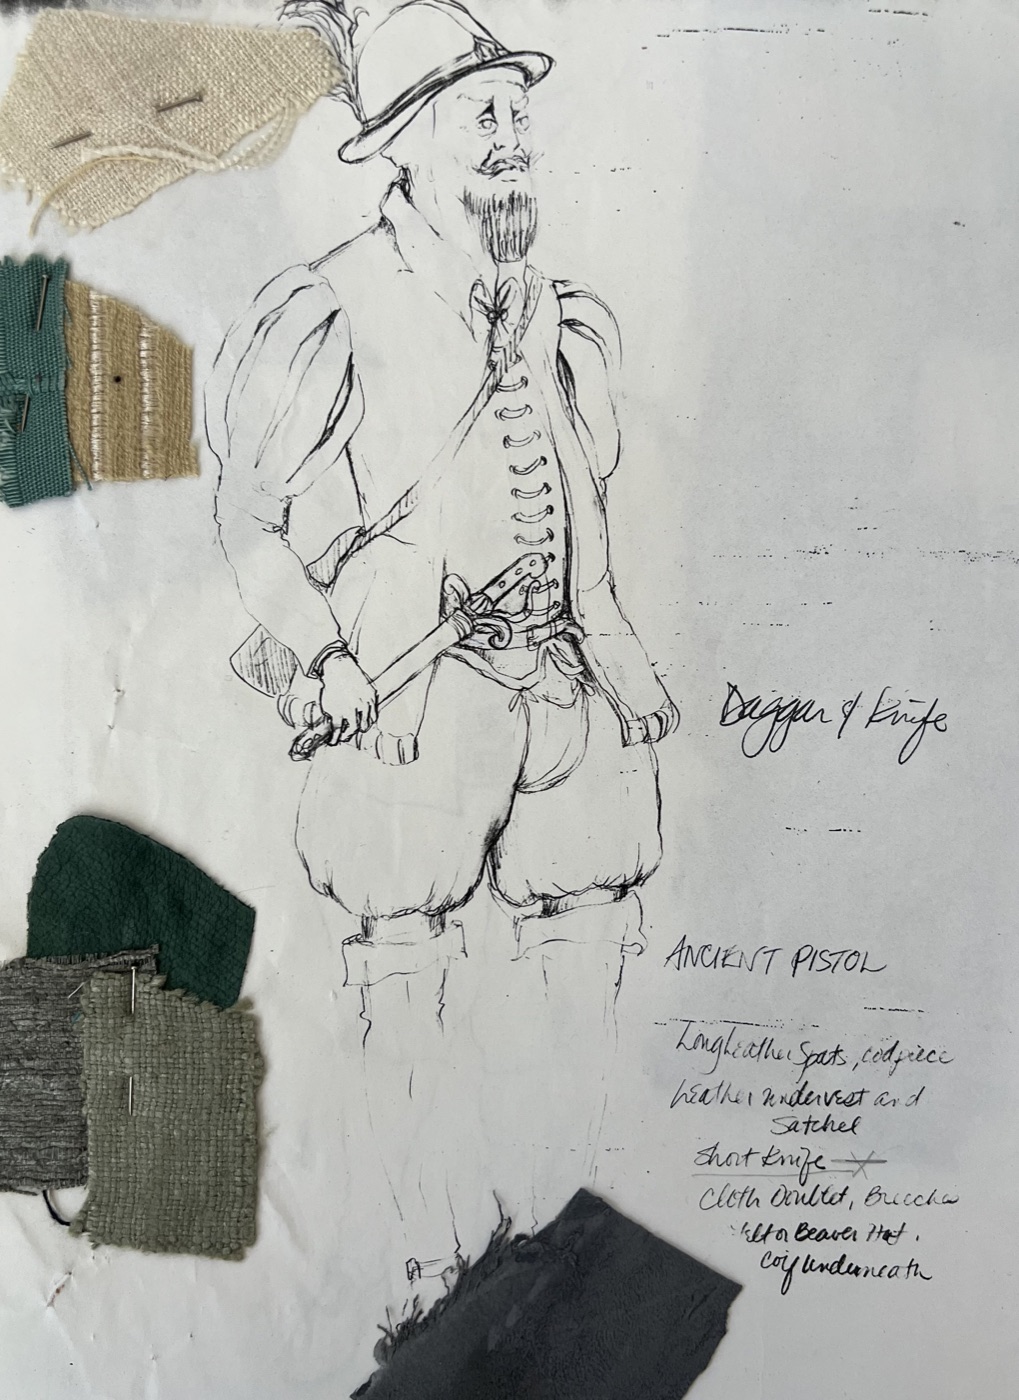 Daggar & Knife
ANCIENT PISTOL
Long Leather Spats, codpiece
Leather undervest and
Satchel
Short Knife
Cloth Doublet, Breeches
Felt or Beaver Hat,
Coif Underneath